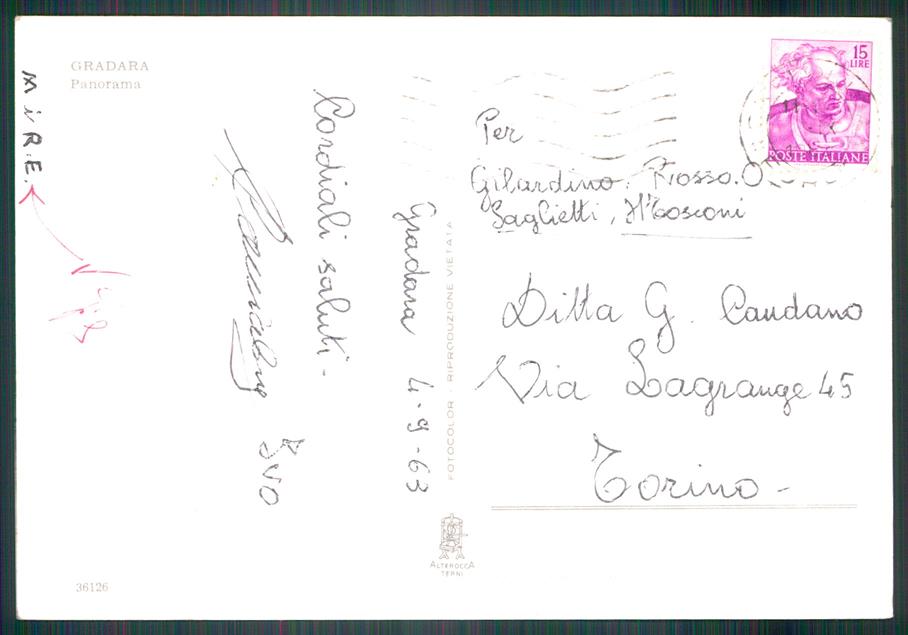 GRADARA
Panorama
M i R.E.
Gradara 4-9-63
Cordiali saluti -
Ivo
FOTOCOLOR - RIPRODUZIONE VIETATA
ALTEROCCA
TERNI
36126
15
LIRE
POSTE ITALIANE
Per
Gilardino, Rosso.
Saglietti,
Ditta G. Caudano
Via Lagrange 45
Torino -